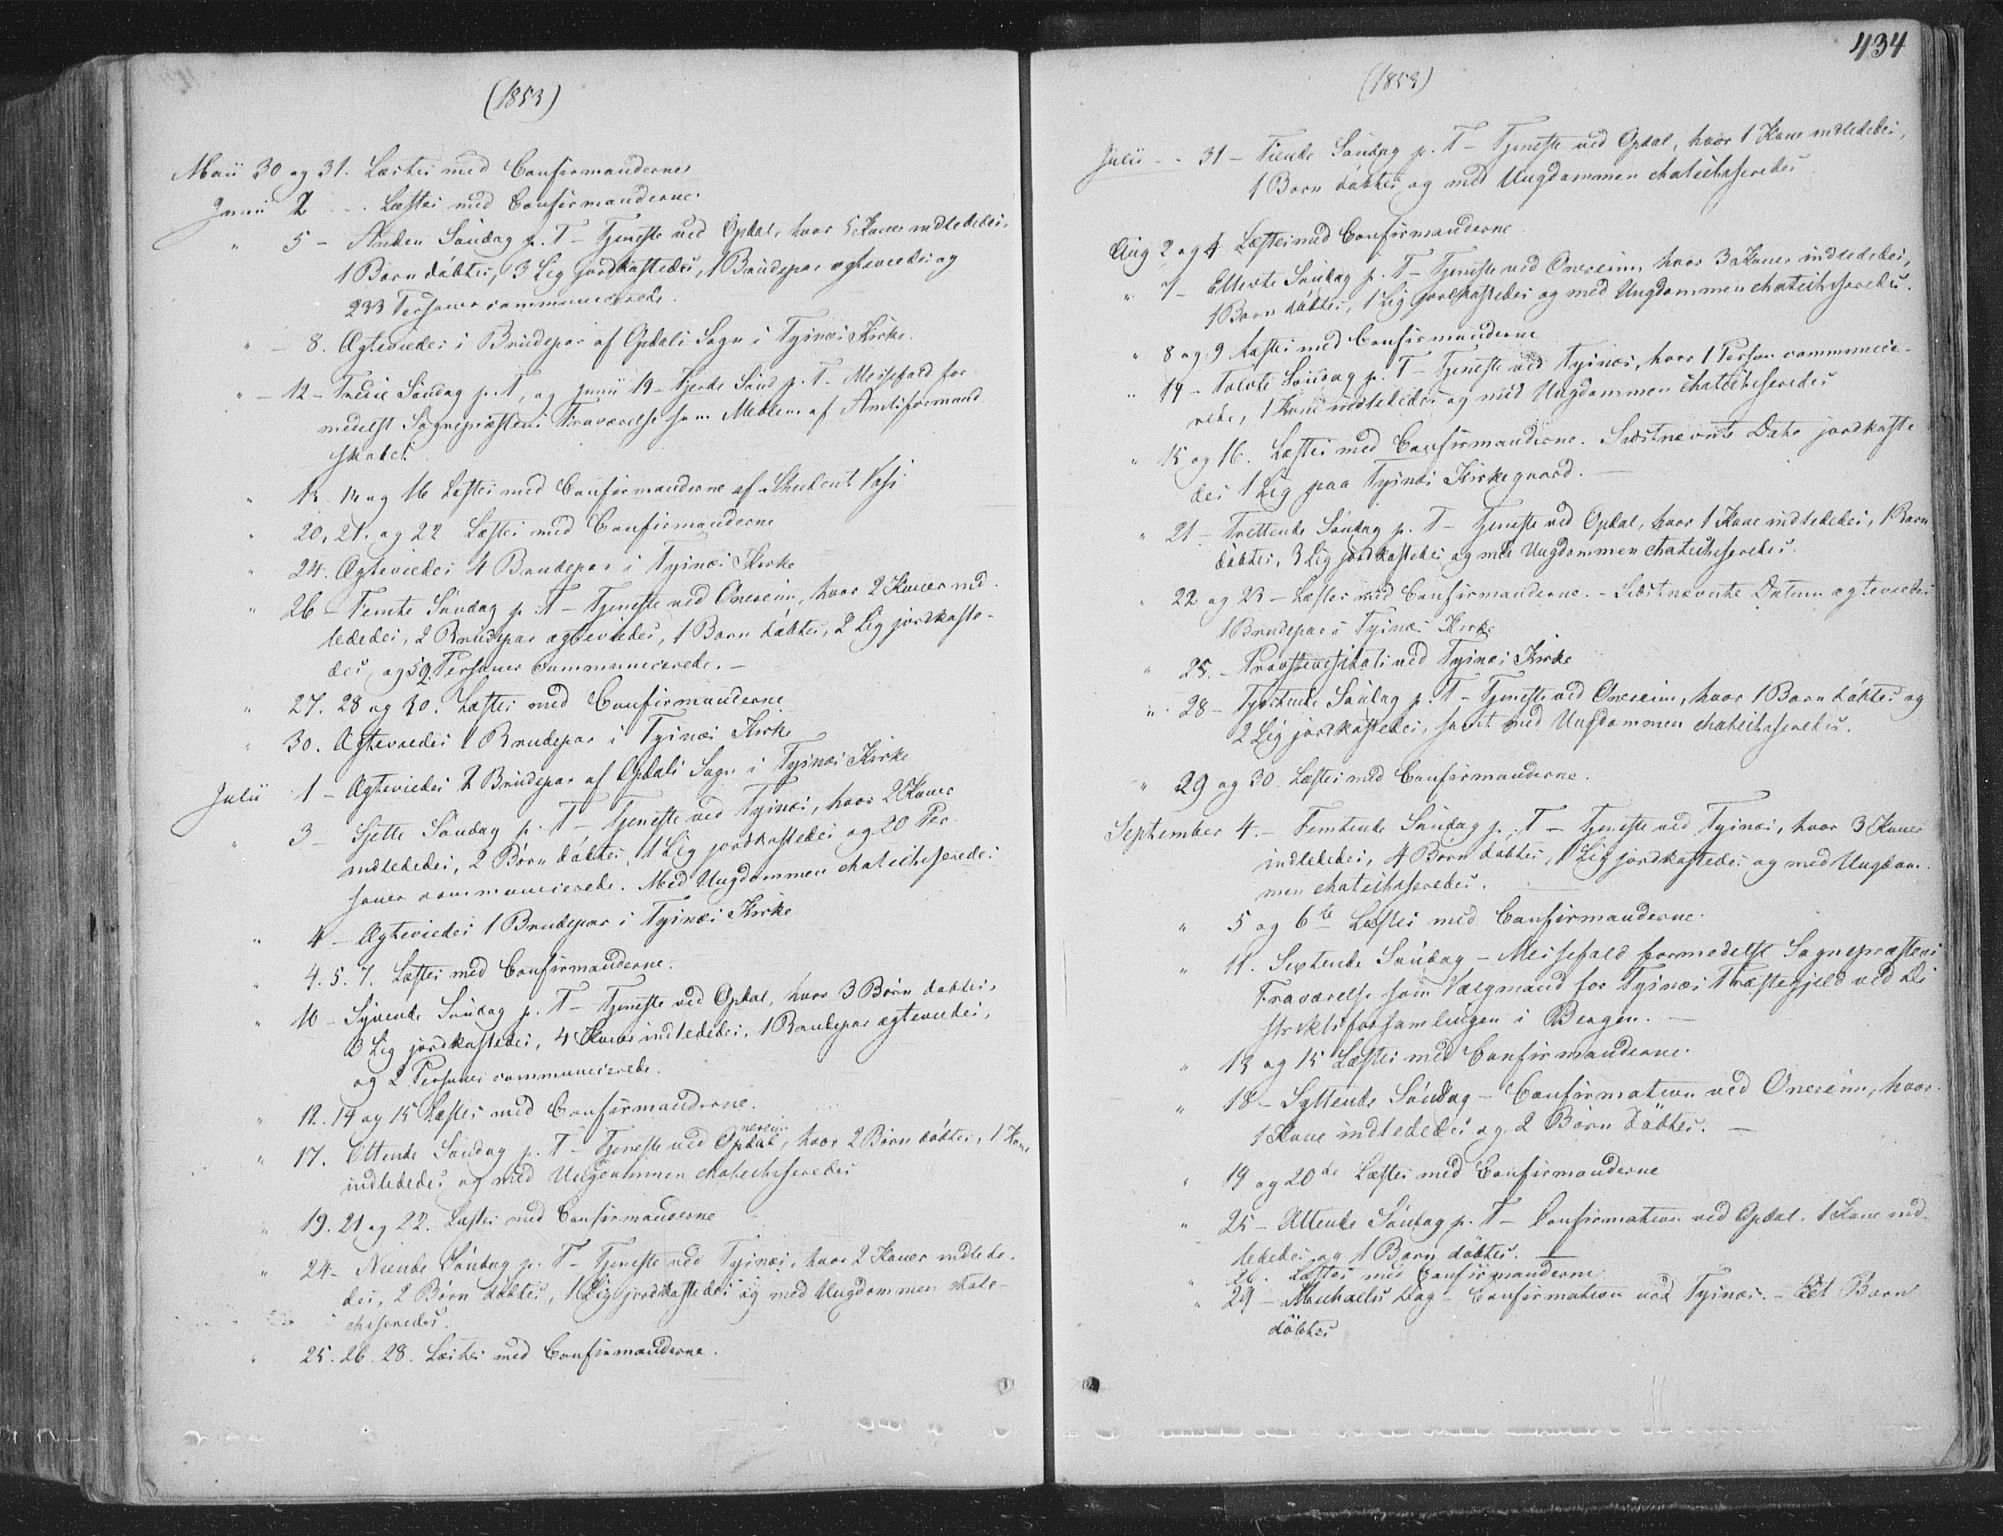 (1853)
Maii 30 og 31. Læstes med Confirmanderne
Junii 2 . . . Læstes med Confirmanderne.
" 5 – Anden Søndag p. T – Tjeneste ved Opdal, hvor 5 Koner indlededes,
1 Barn døbtes, 3 Lig jordkastedes, 1 Brudepar ægteviedes og
233 Personer communicerede.
" – 8. Ægteviedes 1 Brudepar af Opdals Sogn i Tysnæs Kirke.
" – 12 – Tredie Søndag p. T, og Junii 19 – Fjerde Sønd p. T. – Messefald for-
medelst Sognepræstens Fraværelse som Medlem af Amtsformand-
skabet.
" 13. 14 og 16 Læstes med Confirmanderne af Student
" 20, 21. og 22 Læstes med Confirmanderne
" 24. Ægteviedes 4 Brudepar i Tysnæs Kirke
" 26 – Femte Søndag p. T – Tjeneste ved Onereim, hvor 2 Koner ind-
lededes, 2 Brudepar ægteviedes, 1 Barn døbtes, 2 Lig jordkaste-
des, og 52 Personer communicerede. –
" 27. 28 og 30. Læstes med Confirmanderne
" 30. Ægteviedes 1 Brudepar i Tysnæs Kirke
Julii 1 – Ægteviedes 2 Brudepar af Opdals Sogn i Tysnæs Kirke
" 3 – Sjette Søndag p. T – Tjeneste ved Tysnæs, hvor 2 Koner
indlededes, 2 Børn døbtes, 1 Lig jordkastedes og 20 Per-
soner communicerede. Med Ungdommen chatechiseredes
" 4 – Ægteviedes 1 Brudepar i Tysnæs Kirke
" 4. 5. 7. Læstes med Confirmanderne.
" 10 – Syvende Søndag p. T – Tjeneste ved Opdal, hvor 3 Børn døbtes,
3 Lig jordkastedes, 4 Koner indlededes, 1 Brudepar ægteviedes,
og 2 Personer communicerede.
" 12. 14 og 15 Læstes med Confirmanderne.
" 17. Ottende Søndag p. T – Tjeneste ved Opdal nereim, hvor 2 Børn døbtes, 1 Kone
indlededes og med Ungdommen chatechiseredes
" 19. 21 og 22. Læstes med Confirmanderne
" 24 – Niende Søndag p. T – Tjeneste ved Tysnæs, hvor 2 Koner indlede-
des, 2 Børn døbtes, 1 Lig jordkastedes og med Ungdommen chate-
chiseredes.
" 25. 26. 28. Læstes med Confirmanderne.
434
(1853)
Julii – . 31 – Tiende Søndag p. T – Tjeneste ved Opdal, hvor 1 Kone indlededes,
1 Barn døbtes og med Ungdommen chatechiseredes
Aug 2 og 4 Læstes med Confirmanderne
" 7 – Ellevte Søndag p. T – Tjeneste ved Onereim, hvor 3 Koner indlededes,
1 Barn døbtes, 1 Lig jordkastedes og med Ungdommen chatechiseredes.
" 8 og 9 Læstes med Confirmanderne
" 14 – Tolvte Søndag p. T – Tjeneste ved Tysnæs, hvor 1 Person communice-
rede, 1 Kone indlededes og med Ungdommen chatechiseredes
" 15 og 16. Læstes med Confirmanderne. Sidstnævnte Dato jordkaste-
des 1 Lig paa Tysnæs Kirkegaard. –
" 21 – Trettende Søndag p. T – Tjeneste ved Opdal, hvor 1 Kone indlededes, 1 Barn
døbtes, 3 Lig jordkastedes og med Ungdommen chatechiseredes.
" 22 og 23 – Læstes med Confirmanderne. – Sidstnævnte Datum ægteviedes
1 Brudepar i Tysnæs Kirke
" 25. – Provstevisitats ved Tysnæs Kirke
" 28 – Fjortende Søndag p. T – Tjeneste ved Onereim, hvor 1 Barn døbtes og
2 Lig jordkastedes, samt med Ungdommen chatechiseredes.
" 29 og 30. Læstes med Confirmanderne.
September 4. – Femtende Søndag p. T – Tjeneste ved Tysnæs, hvor 3 Koner
indlededes, 4 Børn døbtes, 1 Lig jordkastedes og med Ungdom-
men chatechiseredes.
" 5 og 6te Læstes med Confirmanderne.
" 11. Sextende Søndag – Messefald formedelst Sognepræstens
Fraværelse som Valgmand for Tysnæs Præstegjeld ved Di-
striktsforsamlingen i Bergen. –
" 13 og 15 Læstes med Confirmanderne.
" 18 – Syttende Søndag – Confirmation ved Onereim, hvor
1 Kone indlededes og 2 Børn døbtes. –
" 19 og 20de Læstes med Confirmanderne
" 25 – Attende Søndag p. T – Confirmation ved Opdal. 1 Kone ind-
lededes og 1 Barn døbtes. –
" 26. Læstes med Confirmanderne
" 29 – Michaelis Dag – Confirmation ved Tysnæs. – Et Barn
døbtes